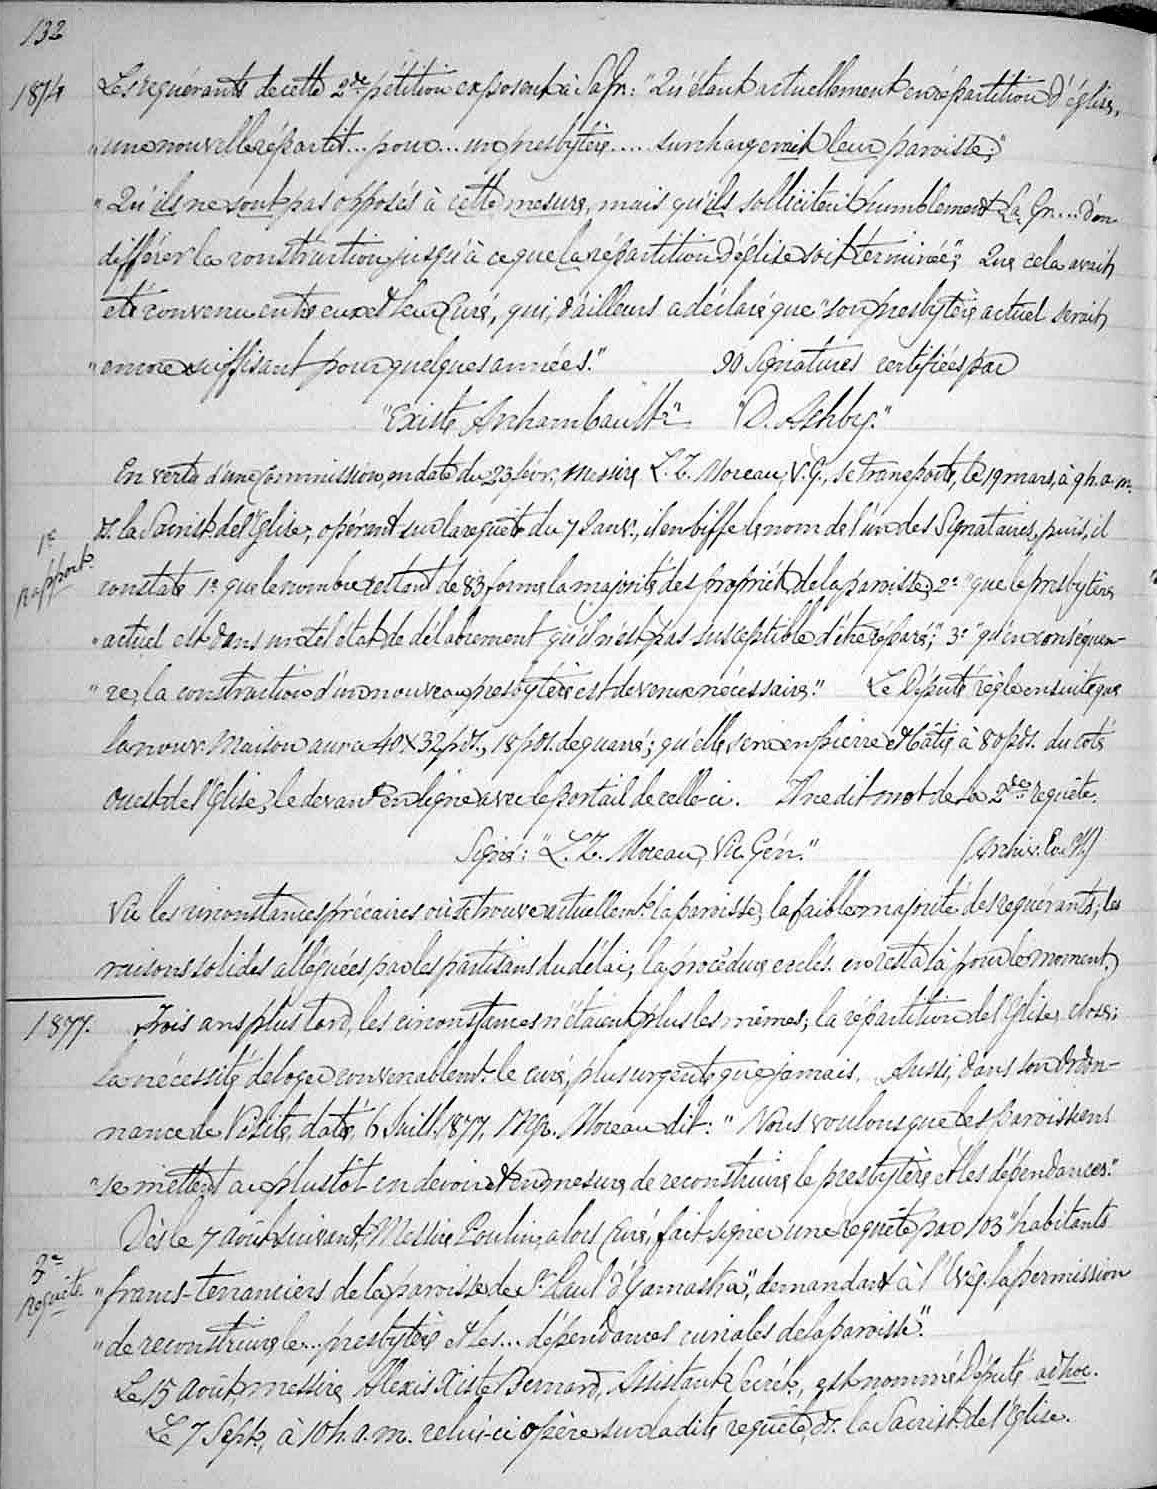 132
1874 Les requérants de cette 2de pétition exposent à Sa Gr: "Qu'étant actuellement en répartition d'église,
"une nouvelle répartit... pour... un presbytère..... surchargerait leur paroisse;"
"Qu'ils ne sont pas opposés à cette mesure, mais qu'ils sollicitent humblement Sa Gr.... d'en
différer la construction jusqu'à ce que la répartition d'église soit terminée"; Que cela avait
été convenu entre eux et leur Curé, qui, d'ailleurs a déclaré que "son presbytère actuel serait
"encore suffisant pour quelques années." 90 Signatures certifiées par
"Existe Archambault" "D. Ashby."
En vertu d'une Commission, en date du 23 févr., Messire L. Z. Moreau, V.G., se transporte, le 19 mars, à 9 h. a. m.
1er rapport.
ds. la Sacrist. de l'Eglise, opérant sur la requête du 7 Janv., il en biffe le nom de l'un des Signataires, puis, il
constate 1o que le nombre restant de 83, forme la majorité des propriét. de la paroisse, 2o "que le presbytère
"actuel est dans un tel état de délabrement qu'il n'est pas susceptible d'être réparé"; 3o "qu'en conséquen-
"ce, la construction d'un nouveau presbytère est devenue nécessaire." Le Député règle ensuite que
la nouv. Maison aura 40 X 32 pds., 18 pds. de quarré; qu'elle sera en pierre et bâtie à 80 pds. du côté
ouest de l'Eglise, le devant en ligne avec le portail de celle-ci. Il ne dit mot de la 2de requête.
Signé: "L. Z. Moreau, Vic. Gén." (Archiv. Ev. StH)
Vu les circonstances précaires où se trouve actuellemt. la paroisse, la faible majorité des requérants, les
raisons solides alléguées par les partisans du délai, la procédure ecclés. en resta là pour le moment.
1877. Trois ans plus tard, les circonstances n'étaient plus les mêmes; la répartition de l'Eglise, close;
la nécessité de loger convenablemt. le curé, plus urgente que jamais. Aussi, dans son Ordon-
nance de Visite, datée 6 Juill. 1877, Mgr. Moreau dit: "Nous voulons que les paroissiens
"se mettent au plustôt en devoir et en mesure de reconstruire le presbytère et les dépendances."
Dès le 7 août suivant, Messire Poulin, alors Curé, fait signer une requête par 103 "habitants
3e requête.
"francs-tenanciers de la paroisse de St. Paul d'Yamaska", demandant à l'Evêq. la permission
"de reconstruire le... presbytère et les... dépendances curiales de la paroisse".
Le 15 août, messire Alexis Xiste Bernard, Assistant Secrét., est nommé Député ad hoc.
Le 7 Sept., à 10 h. a. m. celui-ci opère sur la dite requête, ds. la Sacrist. de l'Eglise.